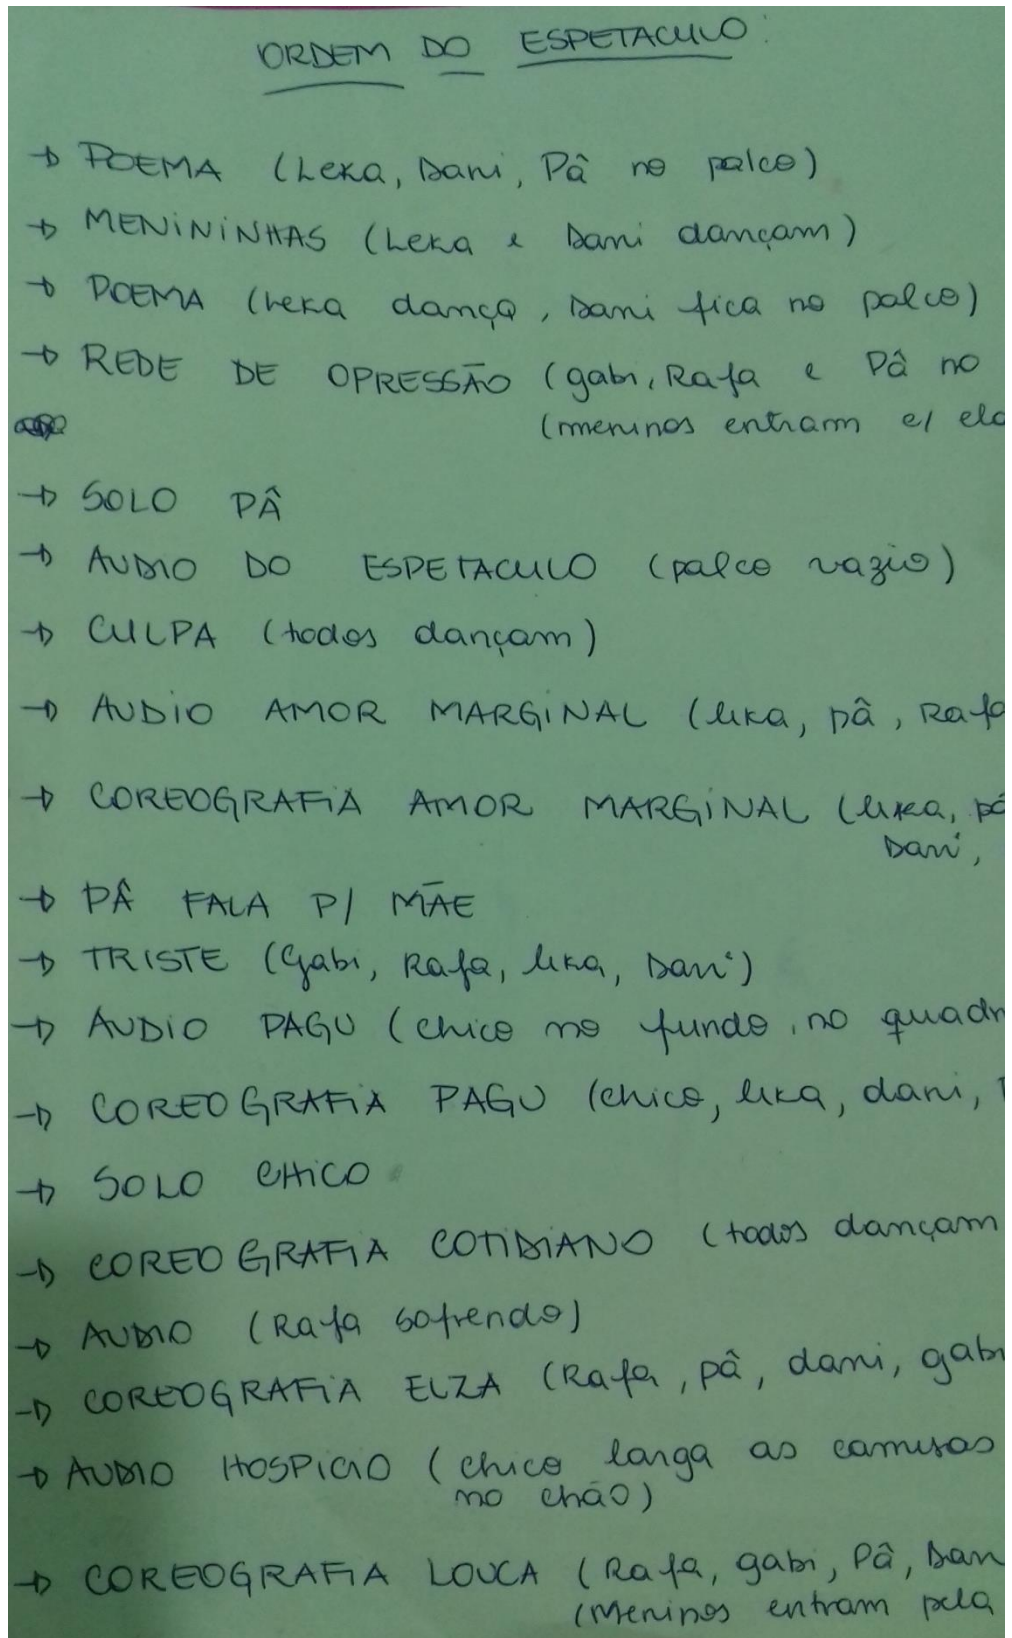 ORDEM DO ESPETACULO:
→ POEMA (Leka, Dani, Pâ no palco)
→ MENININHAS (Leka e Dani dançam)
→ POEMA (Leka dança, Dani fica no palco)
→ REDE DE OPRESSÃO (gabi, Rafa e Pâ no
(meninos entram c/ ela
→ SOLO PÂ
→ AUDIO DO ESPETACULO (palco vazio)
→ CULPA (todos dançam)
→ AUDIO AMOR MARGINAL (leka, pâ, Rafa
→ COREOGRAFIA AMOR MARGINAL (leka, pâ
Dani,
→ PÂ FALA P/ MÃE
→ TRISTE (Gabi, Rafa, leka, Dani)
→ AUDIO PAGU (chico no fundo, no quadr
→ COREOGRAFIA PAGU (chico, leka, dani,
→ SOLO CHICO
→ COREOGRAFIA COTIDIANO (todos dançam
→ AUDIO (Rafa sofrendo)
→ COREOGRAFIA ELZA (Rafa, pâ, dani, gabi
→ AUDIO HOSPICIO (chico larga as camisas
no chão)
→ COREOGRAFIA LOUCA (Rafa, gabi, Pâ, Dan
(Meninos entram pela